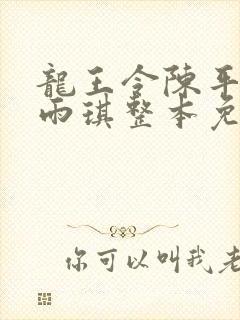 龍王令陳平
雨琪整本免
你可以叫我老